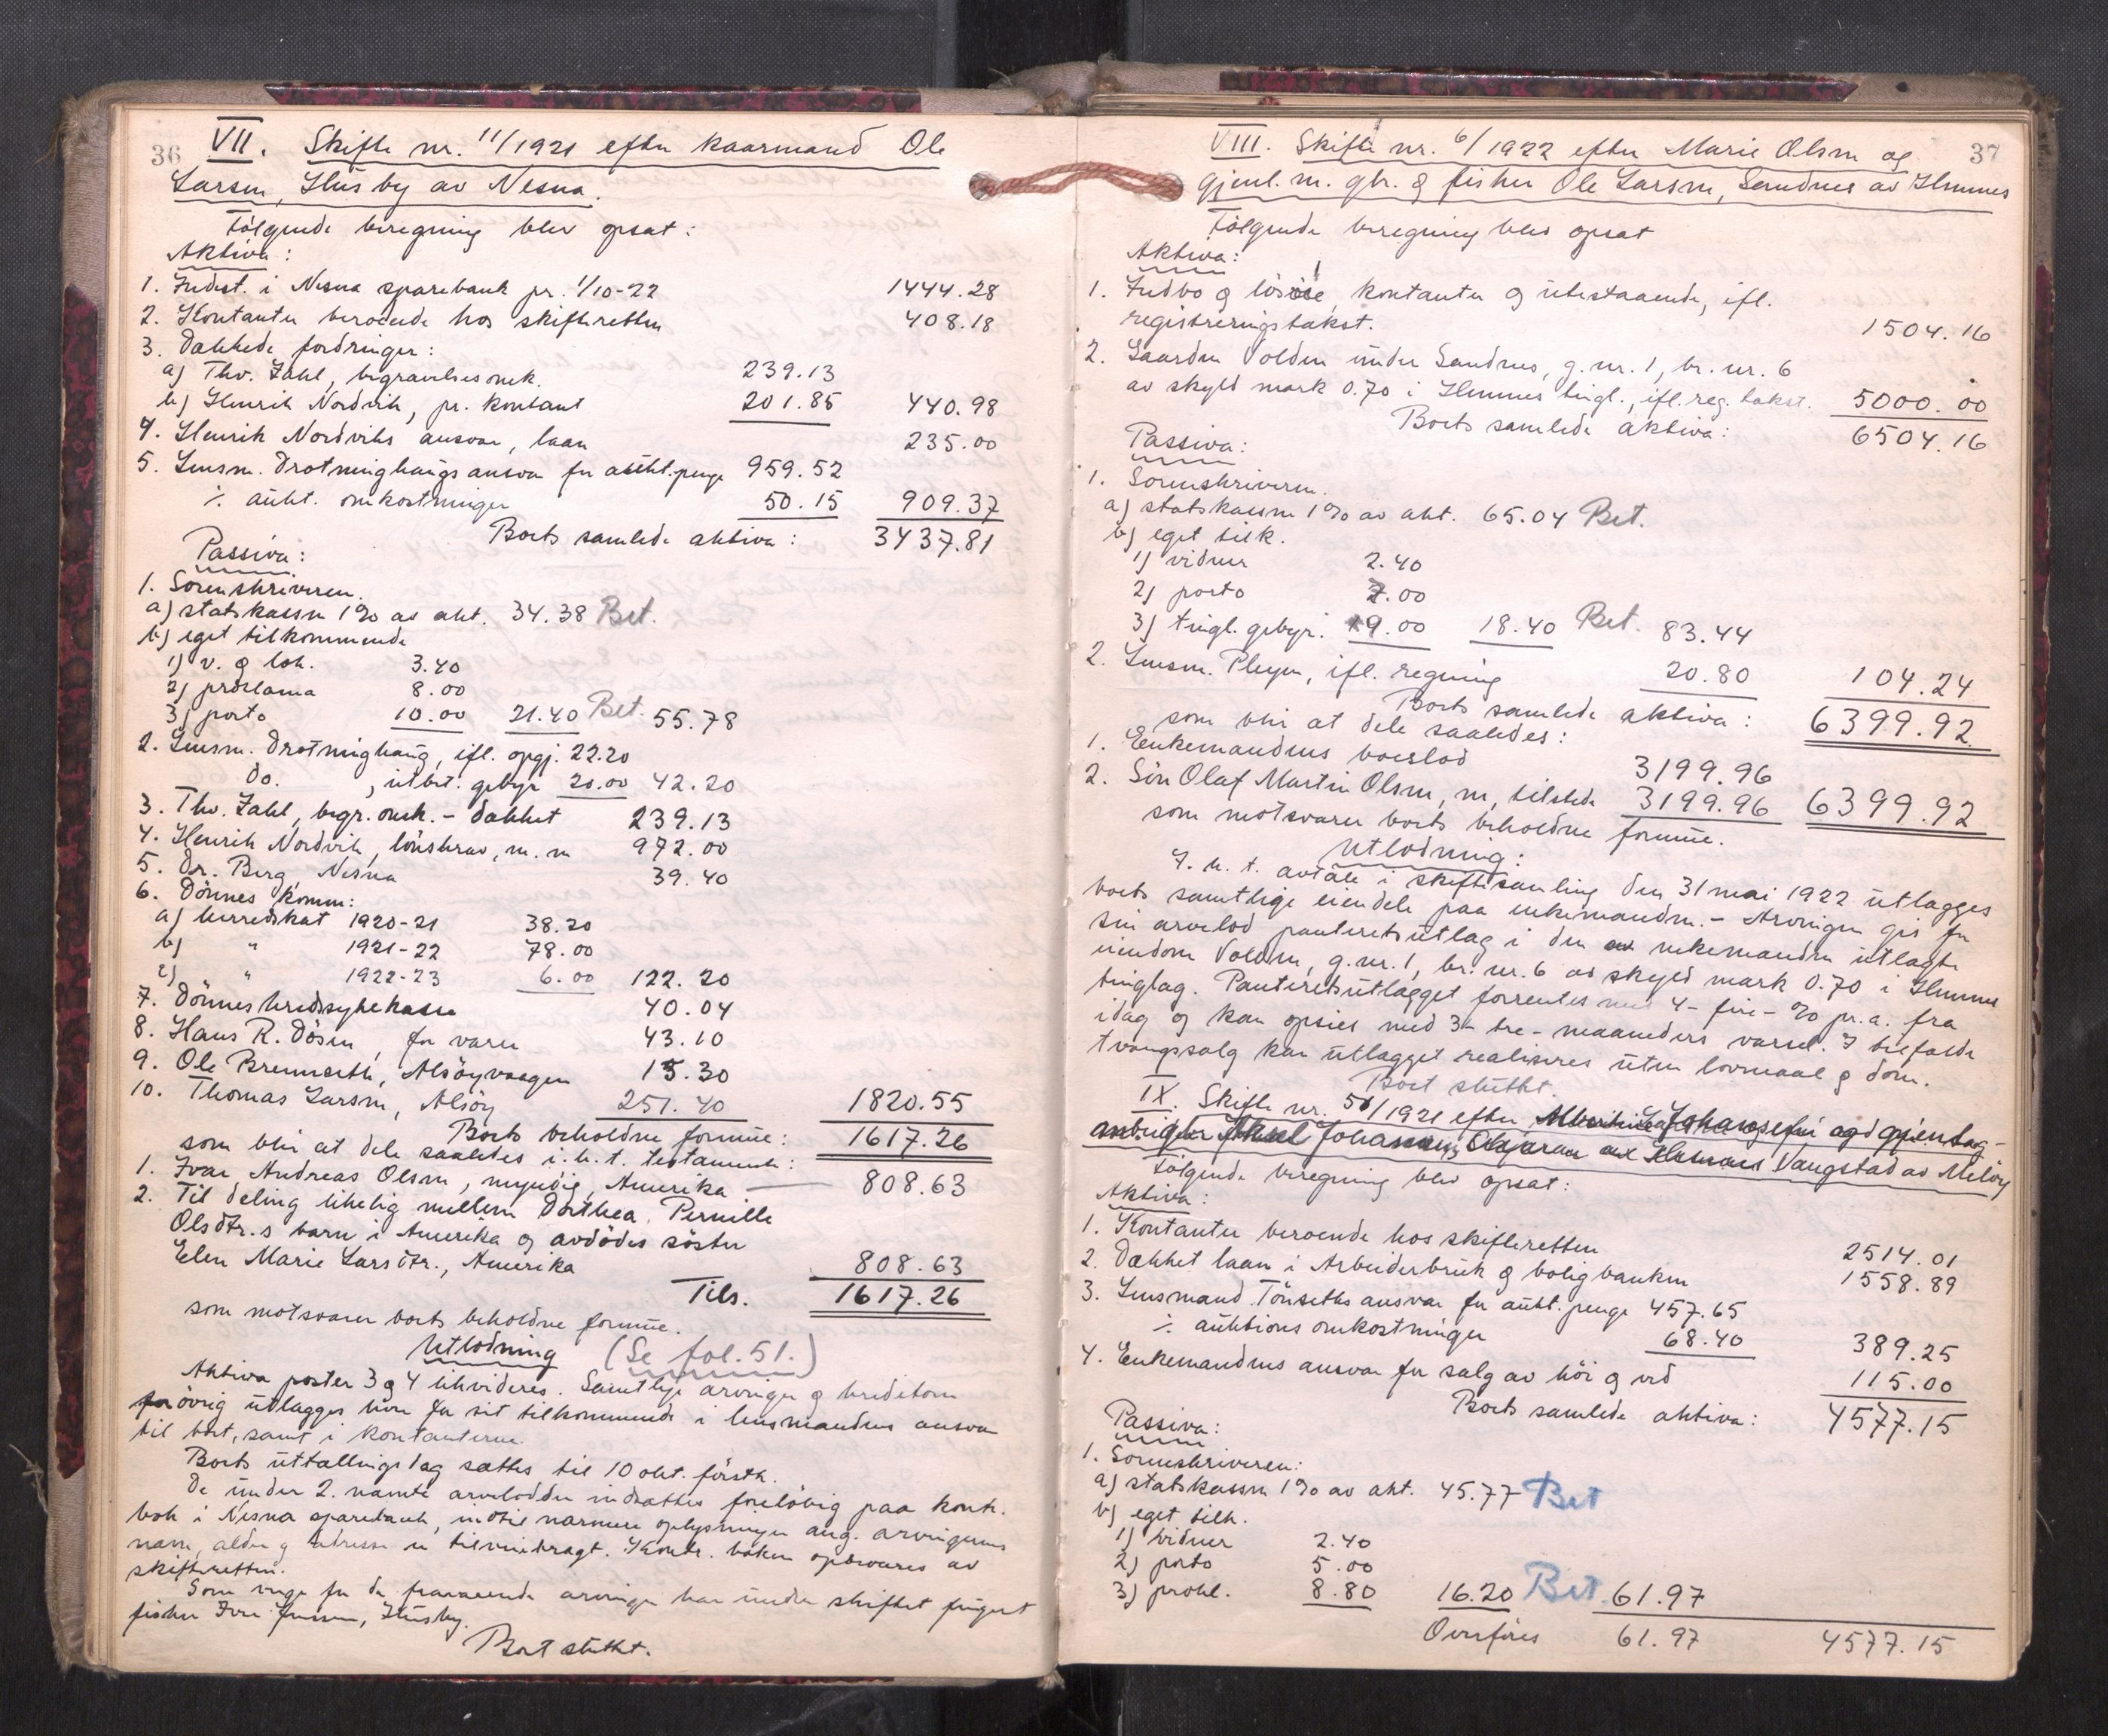 36
VII. Skifte nr. 11/1921 efter kaarmand Ole
Larsen, Husby av Nesna.
Følgende beregning blev opsat:
Aktiva:
1. Indest. i Nesna sparebank pr. 1/10-22 1444.28
2. Kontanter beroende hos skifteretten 408.18
3. Dækkede fordringer:
a) Thv. Zahl, begravelsesomk. 239.13
b) Henrik Nordvik, pr. kontant 201.85 440.98
4. Henrik Nordviks ansvar, laan 235.00
5. Lensm. Drotninghaugs ansvar for aukt.penge 959.52
÷ aukt. omkostninger 50.15 909.37
Boets samlede aktiva: 3437.81
Passiva:
1. Sorenskriveren.
a) statskassen 1% av akt. 34.38 Bet.
b) eget tilkommende
1) v. & lok. 3.40
2) proclama 8.00
3) porto 10.00 21.40 Bet. 55.78
2. Lensm. Drotninghaug, ifl. opgj. 22.20
do. , utbet. gebyr 20.00 42.20
3. Thv. Zahl, begr. omk. - dækket 239.13
4. Henrik Nordvik, lönskrav, m.m 972.00
5. Dr. Berg, Nesna 39.40
6. Dönnes komm:
a) herredskat 1920-21 38.20
b) " 1921-22 78.00
c) " 1922-23 6.00 122.20
7. Dönnes kredssykekasse 40.04
8. Hans R. Dösen, for varer 43.10
9. Ole Brennseth, Alsöyvaagen 15.30
10. Thomas Larsen, Alsöy 251.40 1820.55
Boets beholdne formue: 1617.26
som blir at dele saaledes i.h.t. testamente:
1. Ivar Andreas Olsen, myndig, Amerika — 808.63
2. Til deling likelig mellem Dorthea Pernille
Olsdtr.s barn i Amerika og avdödes söster
Elen Marie Larsdtr., Amerika 808.63
Tils. 1617.26
som motsvarer boets beholdne formue.
Utlodning (Se fol. 51.)
Aktiva poster 3 & 4 likvideres. Samtlige arvinger & kreditorer
forövrig utlægges hver for sit tilkommende i lensmandens ansvar
til boet, samt i kontanterne.
Boets uttællingsdag sættes til 10 okt. förstk.
De under 2. nævnte arvelodder indsættes forelöbig paa kontr.
bok i Nesna sparebank, indtil nærmere oplysninger ang. arvingernes
navn, alder & adresse er tilveiebragt. Kontr. boken opbevares av
skifteretten.
Som verge for de fraværende arvinger har under skiftet fungert
fisker Iver Jensen, Husby.
Boet sluttet.
37
VIII. Skifte nr. 6/1922 efter Marie Olsen og
gjenl. m. gbr. & fisker Ole Larsen, Sandnes av Hemnes
Følgende beregning blev opsat
Aktiva:
1. Indbo & lösöre, kontanter & utestaaende, ifl.
registreringstakst. 1504.16
2. Gaarden Volden under Sandnes, g.nr. 1, br.nr. 6
av skyld mark 0.70 i Hemnes tingl., ifl. reg. takst. 5000.00
Boets samlede aktiva: 6504.16
Passiva:
1. Sorenskriveren.
a) statskassen 1% av akt. 65.04 Bet.
b) eget tilk.
1) vidner 2.40
2) porto 7.00
3) tingl. gebyr. 9.00 18.40 Bet. 83.44
2. Lensm. Pleym, ifl. regning 20.80 104.24
Boets samlede aktiva: 6399.92
som blir at dele saaledes:
1. Enkemandens boeslod 3199.96
2. Sön Olaf Martin Olsen, m, tilstede 3199.96 6399.92
som motsvarer boets beholdne formue.
Utlodning:
I. h. t. avtale i skiftesamling den 31 mai 1922 utlægges
boets samtlige eiendele paa enkemanden. - Arvingen gis for
sin arvelod panteretsutlæg i den enkemanden utlagte
eiendom Volden, g.nr. 1, br. nr. 6 av skyld mark 0.70 i Hemnes
tinglag. Panteretsutlægget forrentes med 4 - fire - % pr. a. fra
idag & kan opsies med 3 - tre - maaneders varsel. I tilfælde
tvangssalg kan utlægget realiseres uten lovmaal & dom.
Boet sluttet.
IX. Skifte nr. 51/1921 efter
Vaugstad av Melöy
Følgende beregning blev opsat:
Aktiva:
1. Kontanter beroende hos skifteretten 2514.01
2. Dækket laan i Arbeiderbruk & boligbanken 1558.89
3. Lensmand Tönseths ansvar for aukt. penge 457.65
÷ auktions omkostninger 68.40 389.25
4. Enkemandens ansvar for salg av höi & ved 115.00
Boets samlede aktiva: 4577.15
Passiva:
1. Sorenskriveren:
a) statskassen 1% av akt. 45.77 Bet
b) eget tilk.
1) vidner 2.40
2) porto 5.00
3) prokl. 8.80 16.20 Bet. 61.97
Overföres 61.97 4577.15